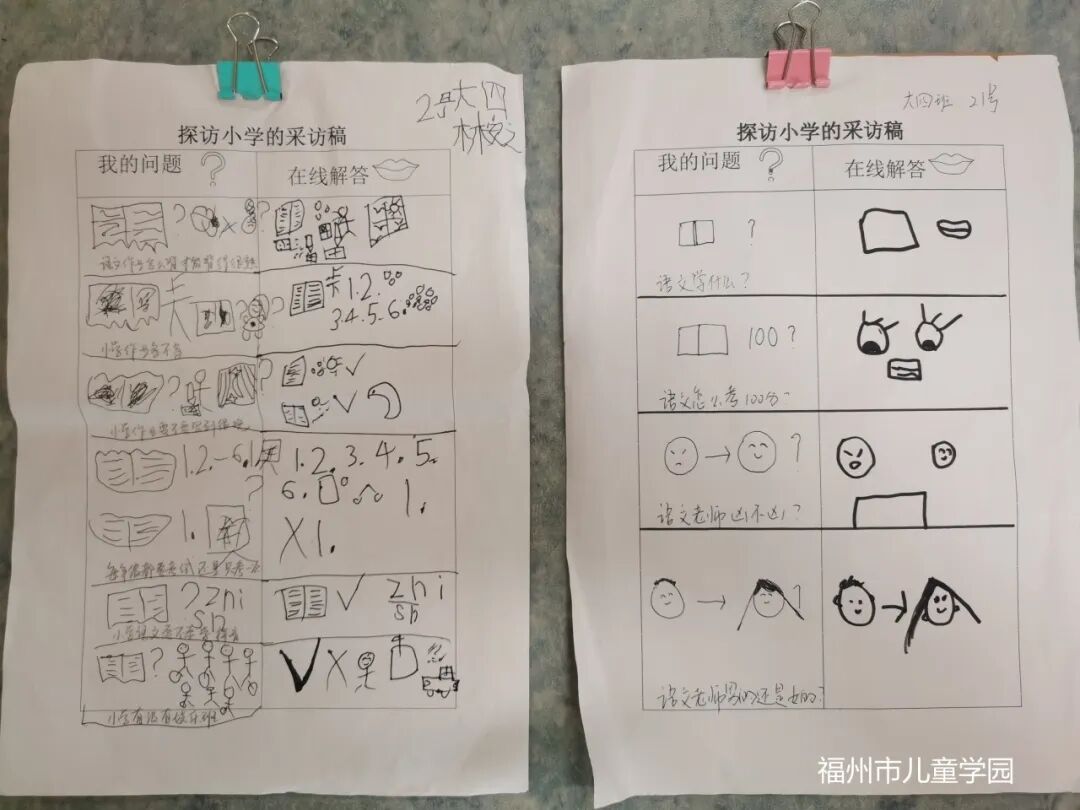 2号大四
林
探访小学的采访稿
我的问题 ?
在线解答
? X ?
语文作
? 卡 ? ?
1. 2.
3. 4. 5. 6.
小学作业多不多
? ?
小学作业要不要写到很晚
1. 2. - 6. 1.
?
1.
1. 2. 3. 4. 5.
6. 1.
X 1.
每年级都要考试还是只考一
? zhi
sh
zhi
sh
小学语文
?
X
小学有没有
大四班 21号
探访小学的采访稿
我的问题 ?
在线解答
?
语文学什么?
100 ?
语文怎么考100分?
?
语文老师凶不凶?
?
语文老师男的还是女的?
福州市儿童学园